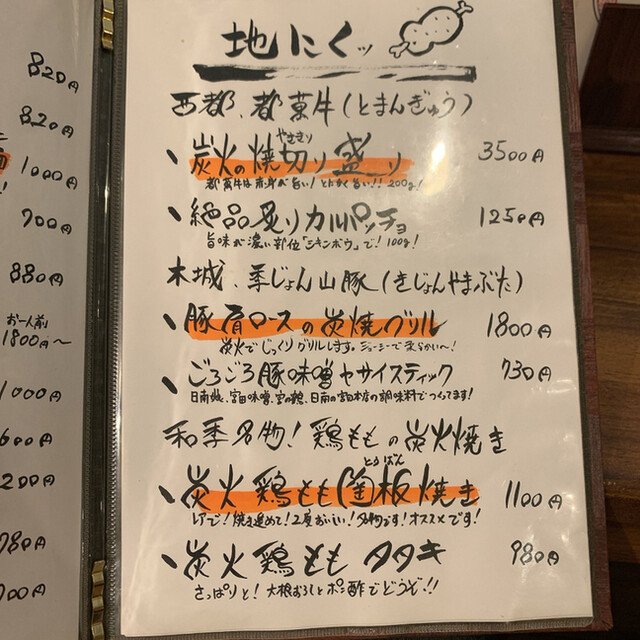 820円
820円
1000円
700円
880円
お一人前
1800円～
1000円
600円
200円
780円
地にくッ
西都、都萬牛(とまんぎゅう)
やききり
、炭火の焼切り盛り 3500円
都萬牛は赤身が旨い!とにかく旨い!!200g!
、絶品炙りカルパッチョ 1250円
旨味が濃い部位「シキンボウ」で!100g!
木城、季じょん山豚(きじょんやまぶた)
、豚肩ロースの炭焼グリル 1800円
炭火でじっくりグリルします。ジューシーで柔らかい～!
、ごろごろ豚味噌ヤサイスティック 730円
日南娘、宮田味噌、宮の鶴、日南の
本店の調味料でつくってます!
和季名物!鶏ももの炭火焼き
とうばん
、炭火鶏もも陶板焼き 1100円
レアで!焼き進めて!2度おいしい!名物です!オススメです!
、炭火鶏ももタタキ 980円
さっぱりと!大根おろしとポン酢でどうぞ!!